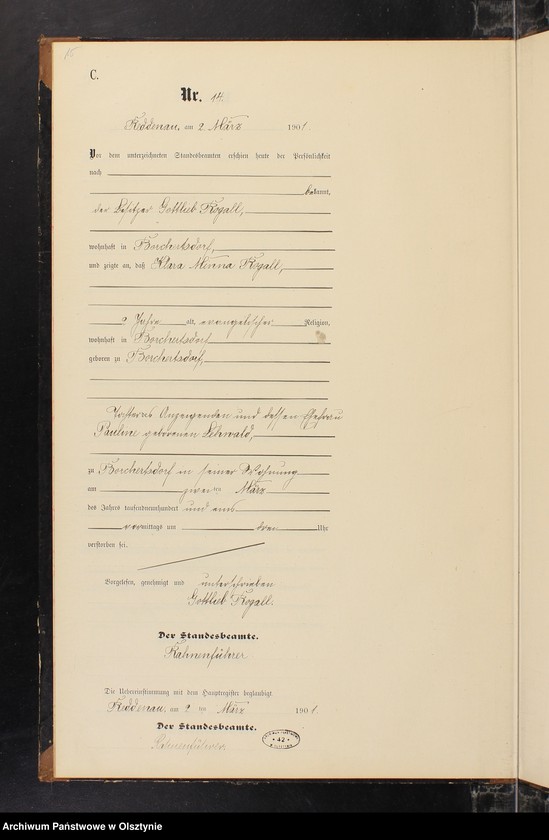 C.
Nr. 14.
am 2 März 1901.
Vor dem unterzeichneten Standesbeamten erschien heute der Persönlichkeit
nach
bekannt,
der Besitzer Gottlieb Rogall,
wohnhaft in Borchertsdorf,
und zeigte an, daß Klara Rogall,
Jahre alt, evangelischer Religion,
wohnhaft in Borchertsdorf
geboren zu Borchertsdorf,
Tochter des Anzeigenden und dessen Ehefrau
Pauline geborenen
zu Borchertsdorf in seiner Wohnung
am zwei ten März
des Jahres tausendneunhundert und eins
vormittags um Uhr
verstorben sei.
Vorgelesen, genehmigt und unterschrieben
Gottlieb Rogall.
Der Standesbeamte.
Die Uebereinstimmung mit dem Hauptregister beglaubigt
am 2 ten März 1901.
Der Standesbeamte.
42
Archiwum Państwowe w Olsztynie